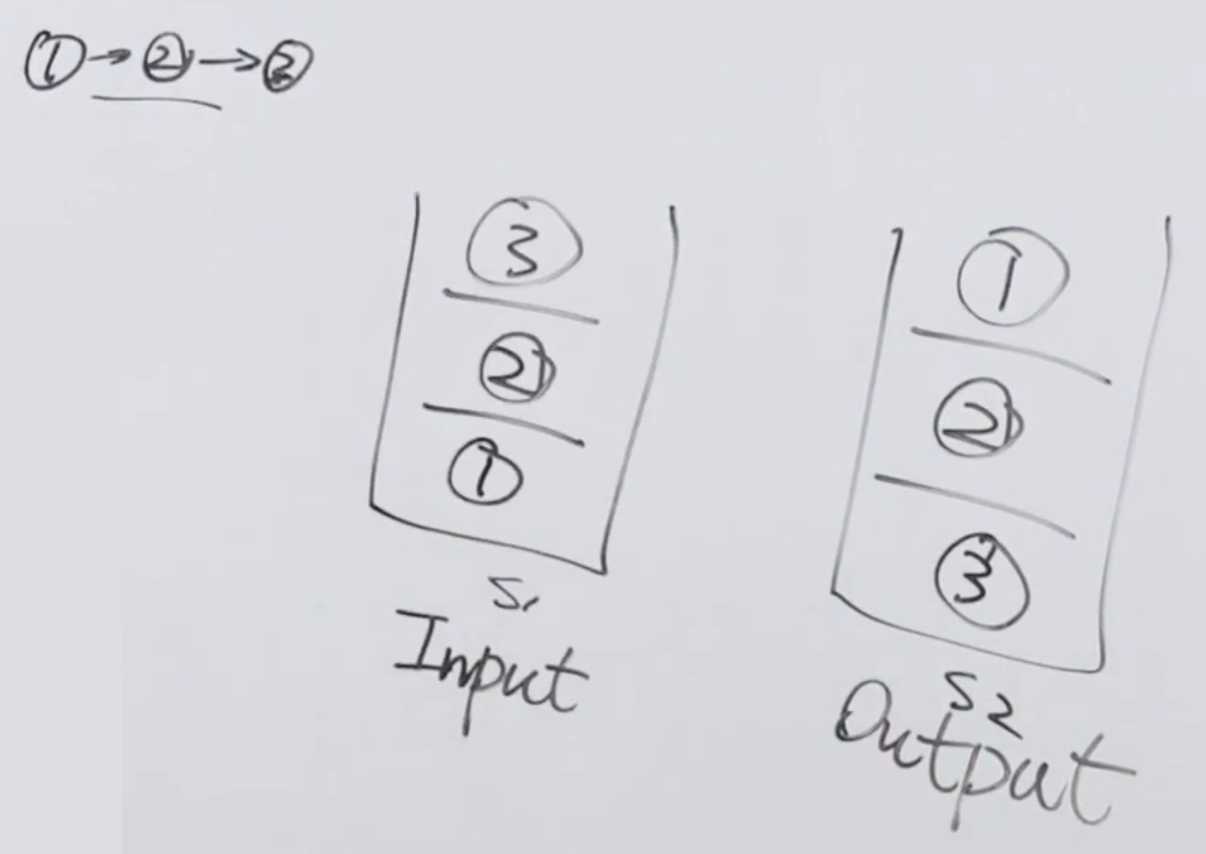 ① → ② → ②
③
②
①
S1
Input
①
②
③
S2
Output